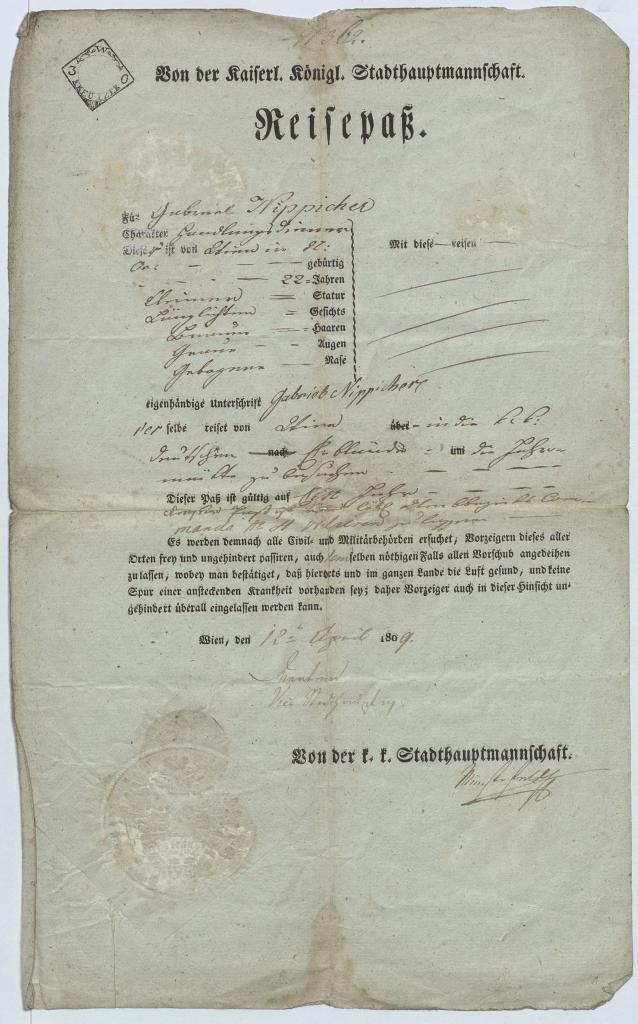 3 KREUTZER
Von der Kaiserl. Königl. Stadthauptmannschaft.
Reisepaß.
Für Gabriel Nippicher
Charakter Handlungsdiener
Diese ist von Wien in
gebürtig
22 Jahren
Statur
Länglichten Gesichts
Braune Haaren
Graue Augen
Gebogene Nase
Mit diese reisen
eigenhändige Unterschrift Gabriel Nippicher
derselbe reiset von Wien über in die k.k.
deutschen nach Erblande um die Jahr-
märkte zu besuchen
Dieser Paß ist gültig auf Ein Jahr
Es werden demnach alle Civil- und Militärbehörden ersuchet, Vorzeigern dieses aller
Orten frey und ungehindert passiren, auch demselben nöthigen Falls allen Vorschub angedeihen
zu lassen, wobey man bestätiget, daß hierorts und im ganzen Lande die Luft gesund, und keine
Spur einer ansteckenden Krankheit vorhanden sey; daher Vorzeiger auch in dieser Hinsicht un-
gehindert überall eingelassen werden kann.
Wien, den 12 April 1809.
Von der k. k. Stadthauptmannschaft.